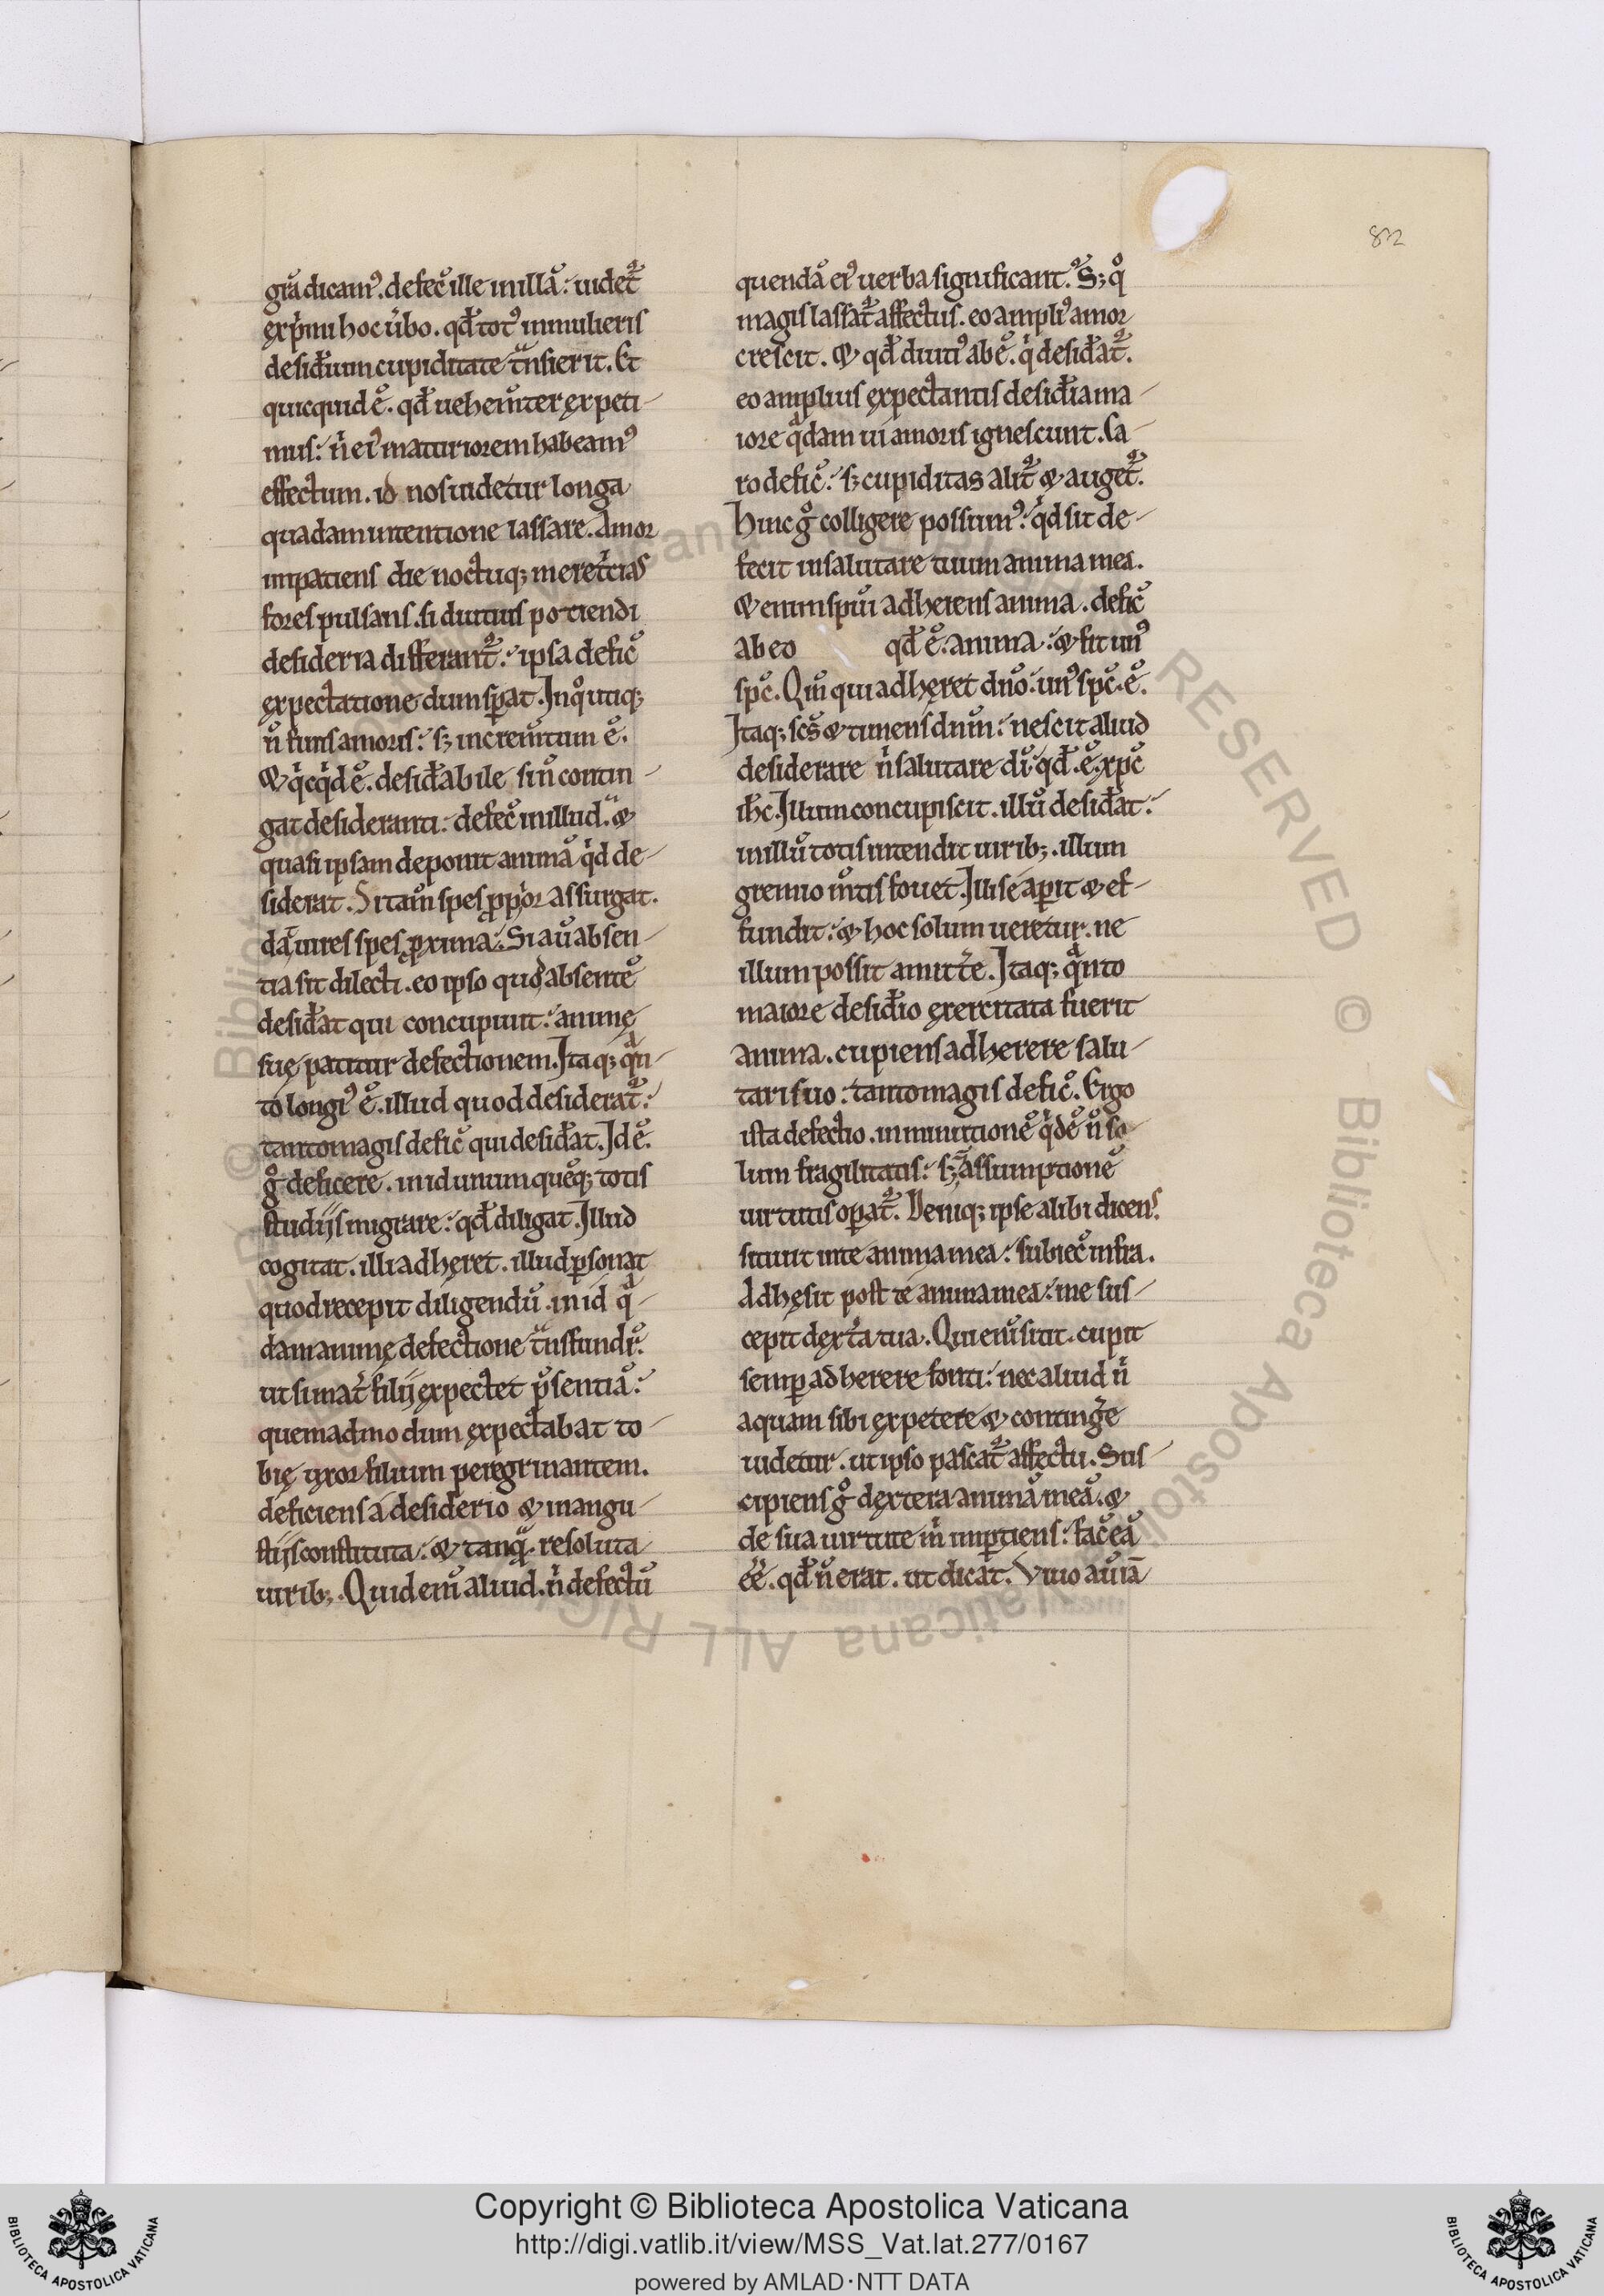 82
grā dicamꝰ. defec̄ ille in illā: uidet᷑
exp̓mi hoc ūbo. qđ totꝰ in mulieris
desid̄ium cupiditate tͣnsierit. Et
quicquid ē. qđ uehem̄ter ęxpeti-
mus: n̓ eiꝰ maturiorem habeamꝰ
effectum. id nos uidetur longa
quadam intentione lassare. Amor
inpatiens die noctuq; meret̓cias
fores pulsans. si diutius potiendi
desideria differant᷑: ipsa defic̄
ęxpectatione dum sꝑat. In qͦ utiq;
n̄ funs amoris: s; increm̄tum ē.
& q̓cq̓d ē. desid̄abile sin̄ contin-
gat desideranti: defec̄ in illud. &
quasi ipsam deponit animā q̓d de-
siderat. Si tam̄ spes ꝓp̓or assurgat.
dat̄ uires spes ꝓxima: Si au̅ absen-
tia sit dilecti. eo ipso quod absentē
desid̄at qui concupiuit: animę
suę patitur defectionem. Itaq; qͣn-
to longiꝰ ē. illud quod desiderat᷑:
tanto magis defic̄ qui desid̄at. Id ē.
gͦ deficere. in id unum quēq; totis
studiis migrare: qđ diligat. Illud
cogitat. illi adhęret. illud ꝑsonat
quod recepit diligendū. in id qͣ-
dam animę defectione tͣnsfundi᷑:
ut si mat̓ filii ęxpectet p̄sentiā:
quemadmodum ęxpectabat to-
bię uxor filium peregrinantem.
deficiens a desiderio & in angu-
stiis constituta: & tanqͣ resoluta
uirib;. Quid em̄ aliud. n̓ defectū
quendā eiꝰ uerba significant᷑. S; qͦ
magis lassat᷑ affectus. eo ampliꝰ amor
crescit. & qđ diutiꝰ ab ē. q̓ desid̄at᷑.
eo amplius ęxpectantis desid̄ia ma-
iore qͣdam ui amoris ignescunt. Ca-
ro defic̄: s; cupiditas alit᷑ & auget᷑.
Hinc gͦ colligere possumꝰ: q̓d sit de-
fecit in salutare tuum anima mea.
& enim sp̄ui adherens anima. defic̄
ab eo qđ ē. anima: & fit unꝰ
sp̄c. Qm̄ qui adhęret dn̄o: unꝰ sp̄c. ē.
Itaq; sc̄s & timens dn̄m: nescit aliud
desiderare n̓ salutare di̅ qđ. ē. xp̄c
ih̄c. Illum concupiscit. illū desid̄at:
in illū totis intendit uirib;. illum
gremio m̄tis fouet. Illi se aꝑit & ef-
fundit: & hoc solum ueretur. ne
illum possit amitt̓e. Itaq; qͣnto
maiore desid̄io ęxercitata fuerit
anima. cupiens adherere salu-
tari suo: tanto magis defic̄. Ergo
ista defectio. inminutionē q̓dē n̄ so-
lum fragilitatis: s; assumptionē
uirtutis oꝑat᷑. Deniq; ipse alibi dicens.
sitiuit in te anima mea: subiec̄ infra.
Adhęsit post te anima mea: me sus-
cepit dęxt̓a tua. Qui em̄ sitit. cupit
semꝑ adherere fonti: nec aliud n̓
aquam sibi ęxpetere & conting̓e
uidetur. ut ipso pascat᷑ affectu. Sus-
cipiens gͦ dęxtera animā meā. &
de sua uirtute m̓ imꝑtiens: fac̄ eā
ēē. qđ n̄ erat. ut dicat. Viuo au̅ iā
Copyright © Biblioteca Apostolica Vaticana
http://digi.vatlib.it/view/MSS_Vat.lat.277/0167
powered by AMLAD·NTT DATA
BIBLIOTECA APOSTOLICA VATICANA
BIBLIOTECA APOSTOLICA VATICANA